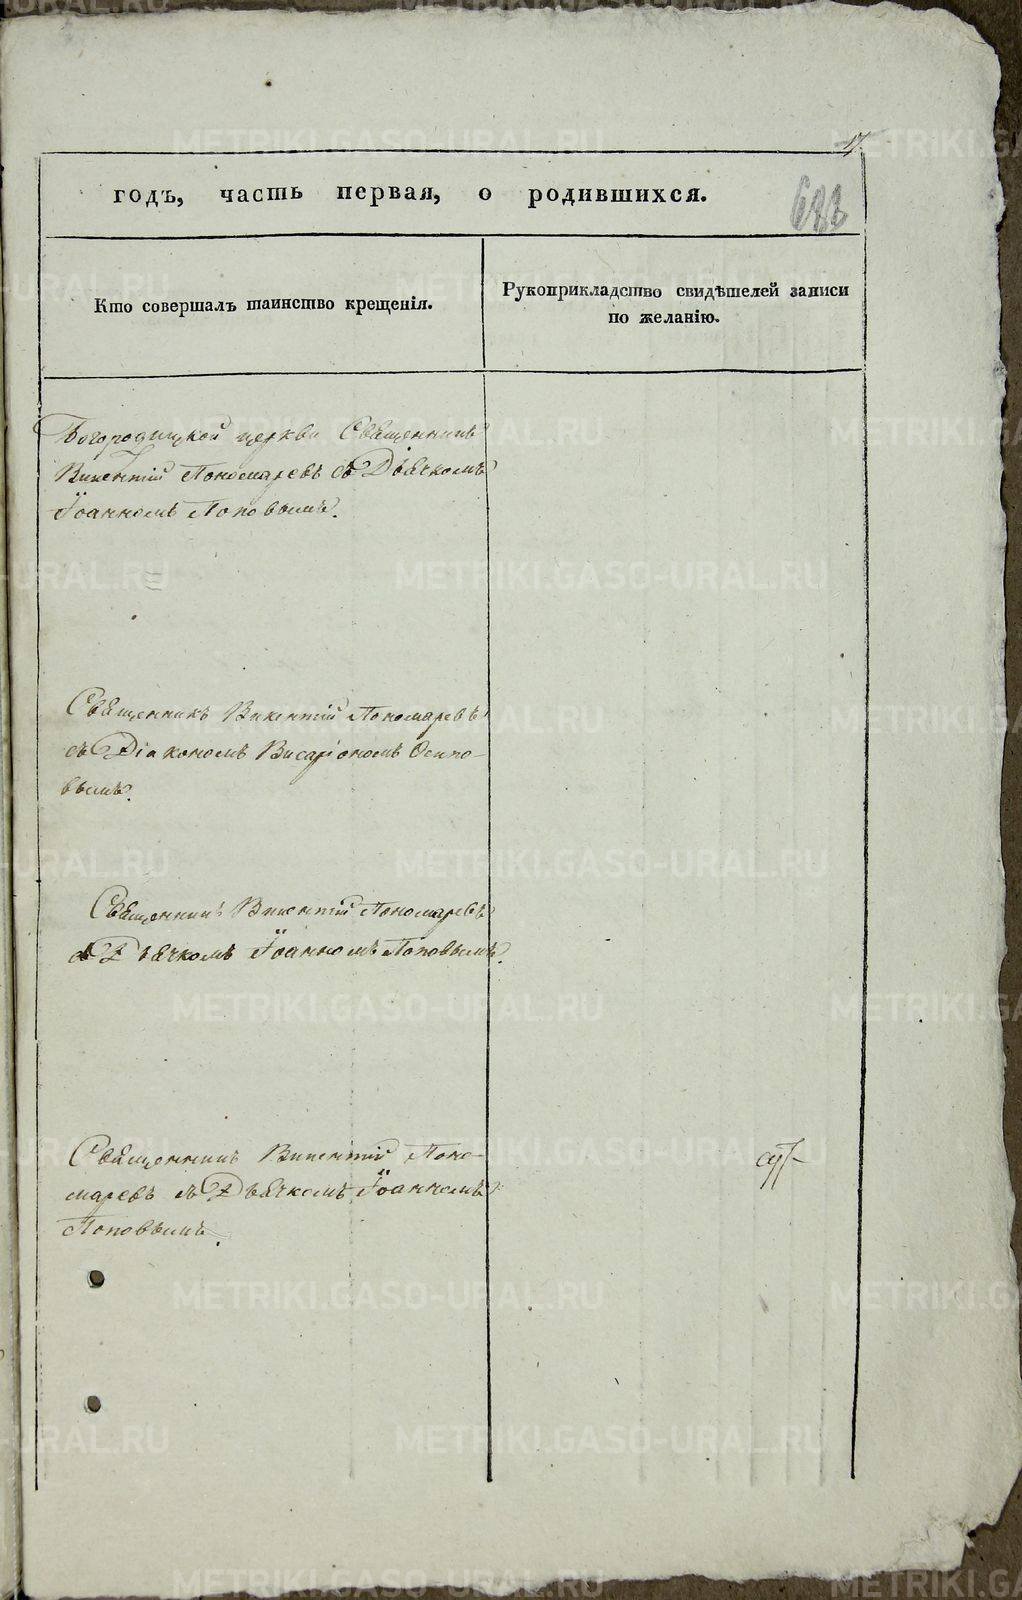 годъ, часть первая, о родившихся.
683
Кто совершалъ таинство крещенія.
Рукоприкладство свидѣтелей записи
по желанію.
Богородицкой церкви Священникъ
Викентій Пономаревъ съ Дьячкомъ
Іоанномъ Поповымъ.
Священникъ Викентій Пономаревъ
съ Діакономъ Висаріономъ Осипо-
вымъ.
Священникъ Викентій Пономаревъ
съ Дьячкомъ Іоанномъ Поповымъ.
Священникъ Викентій Поно-
маревъ съ Дьячкомъ Іоанномъ
Поповымъ.
METRIKI.GASO-URAL.RU